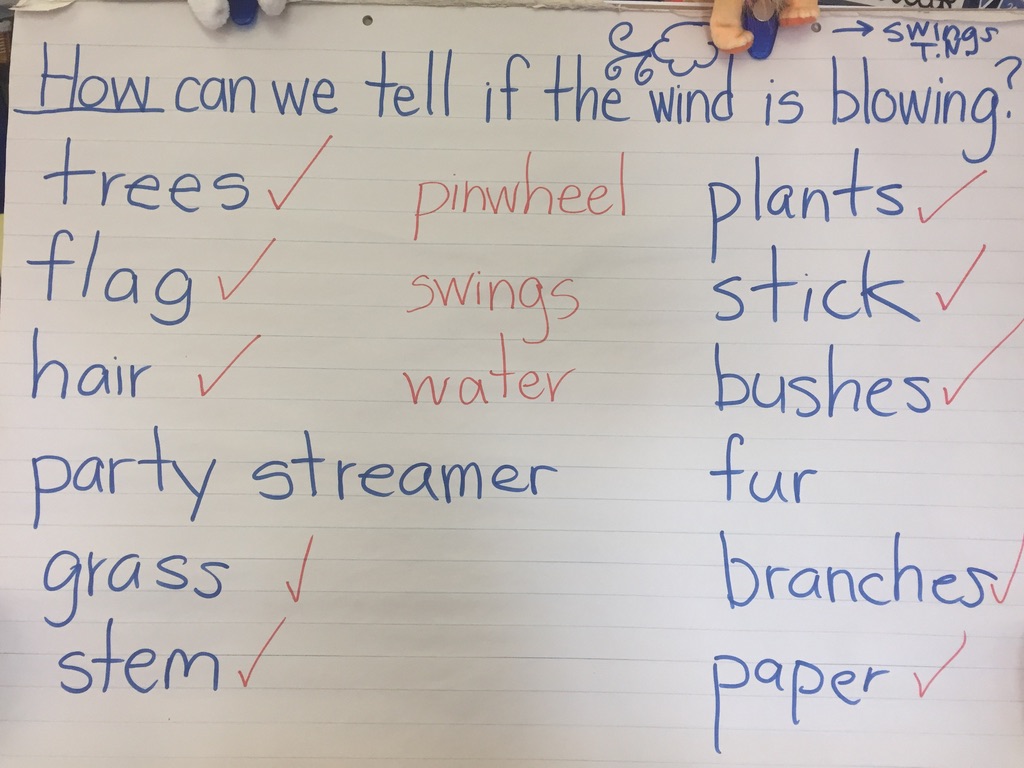 → swings
T.N
How can we tell if the wind is blowing?
trees ✓ pinwheel plants ✓
flag ✓ swings stick ✓
hair ✓ water bushes ✓
party streamer fur
grass ✓ branches ✓
stem ✓ paper ✓